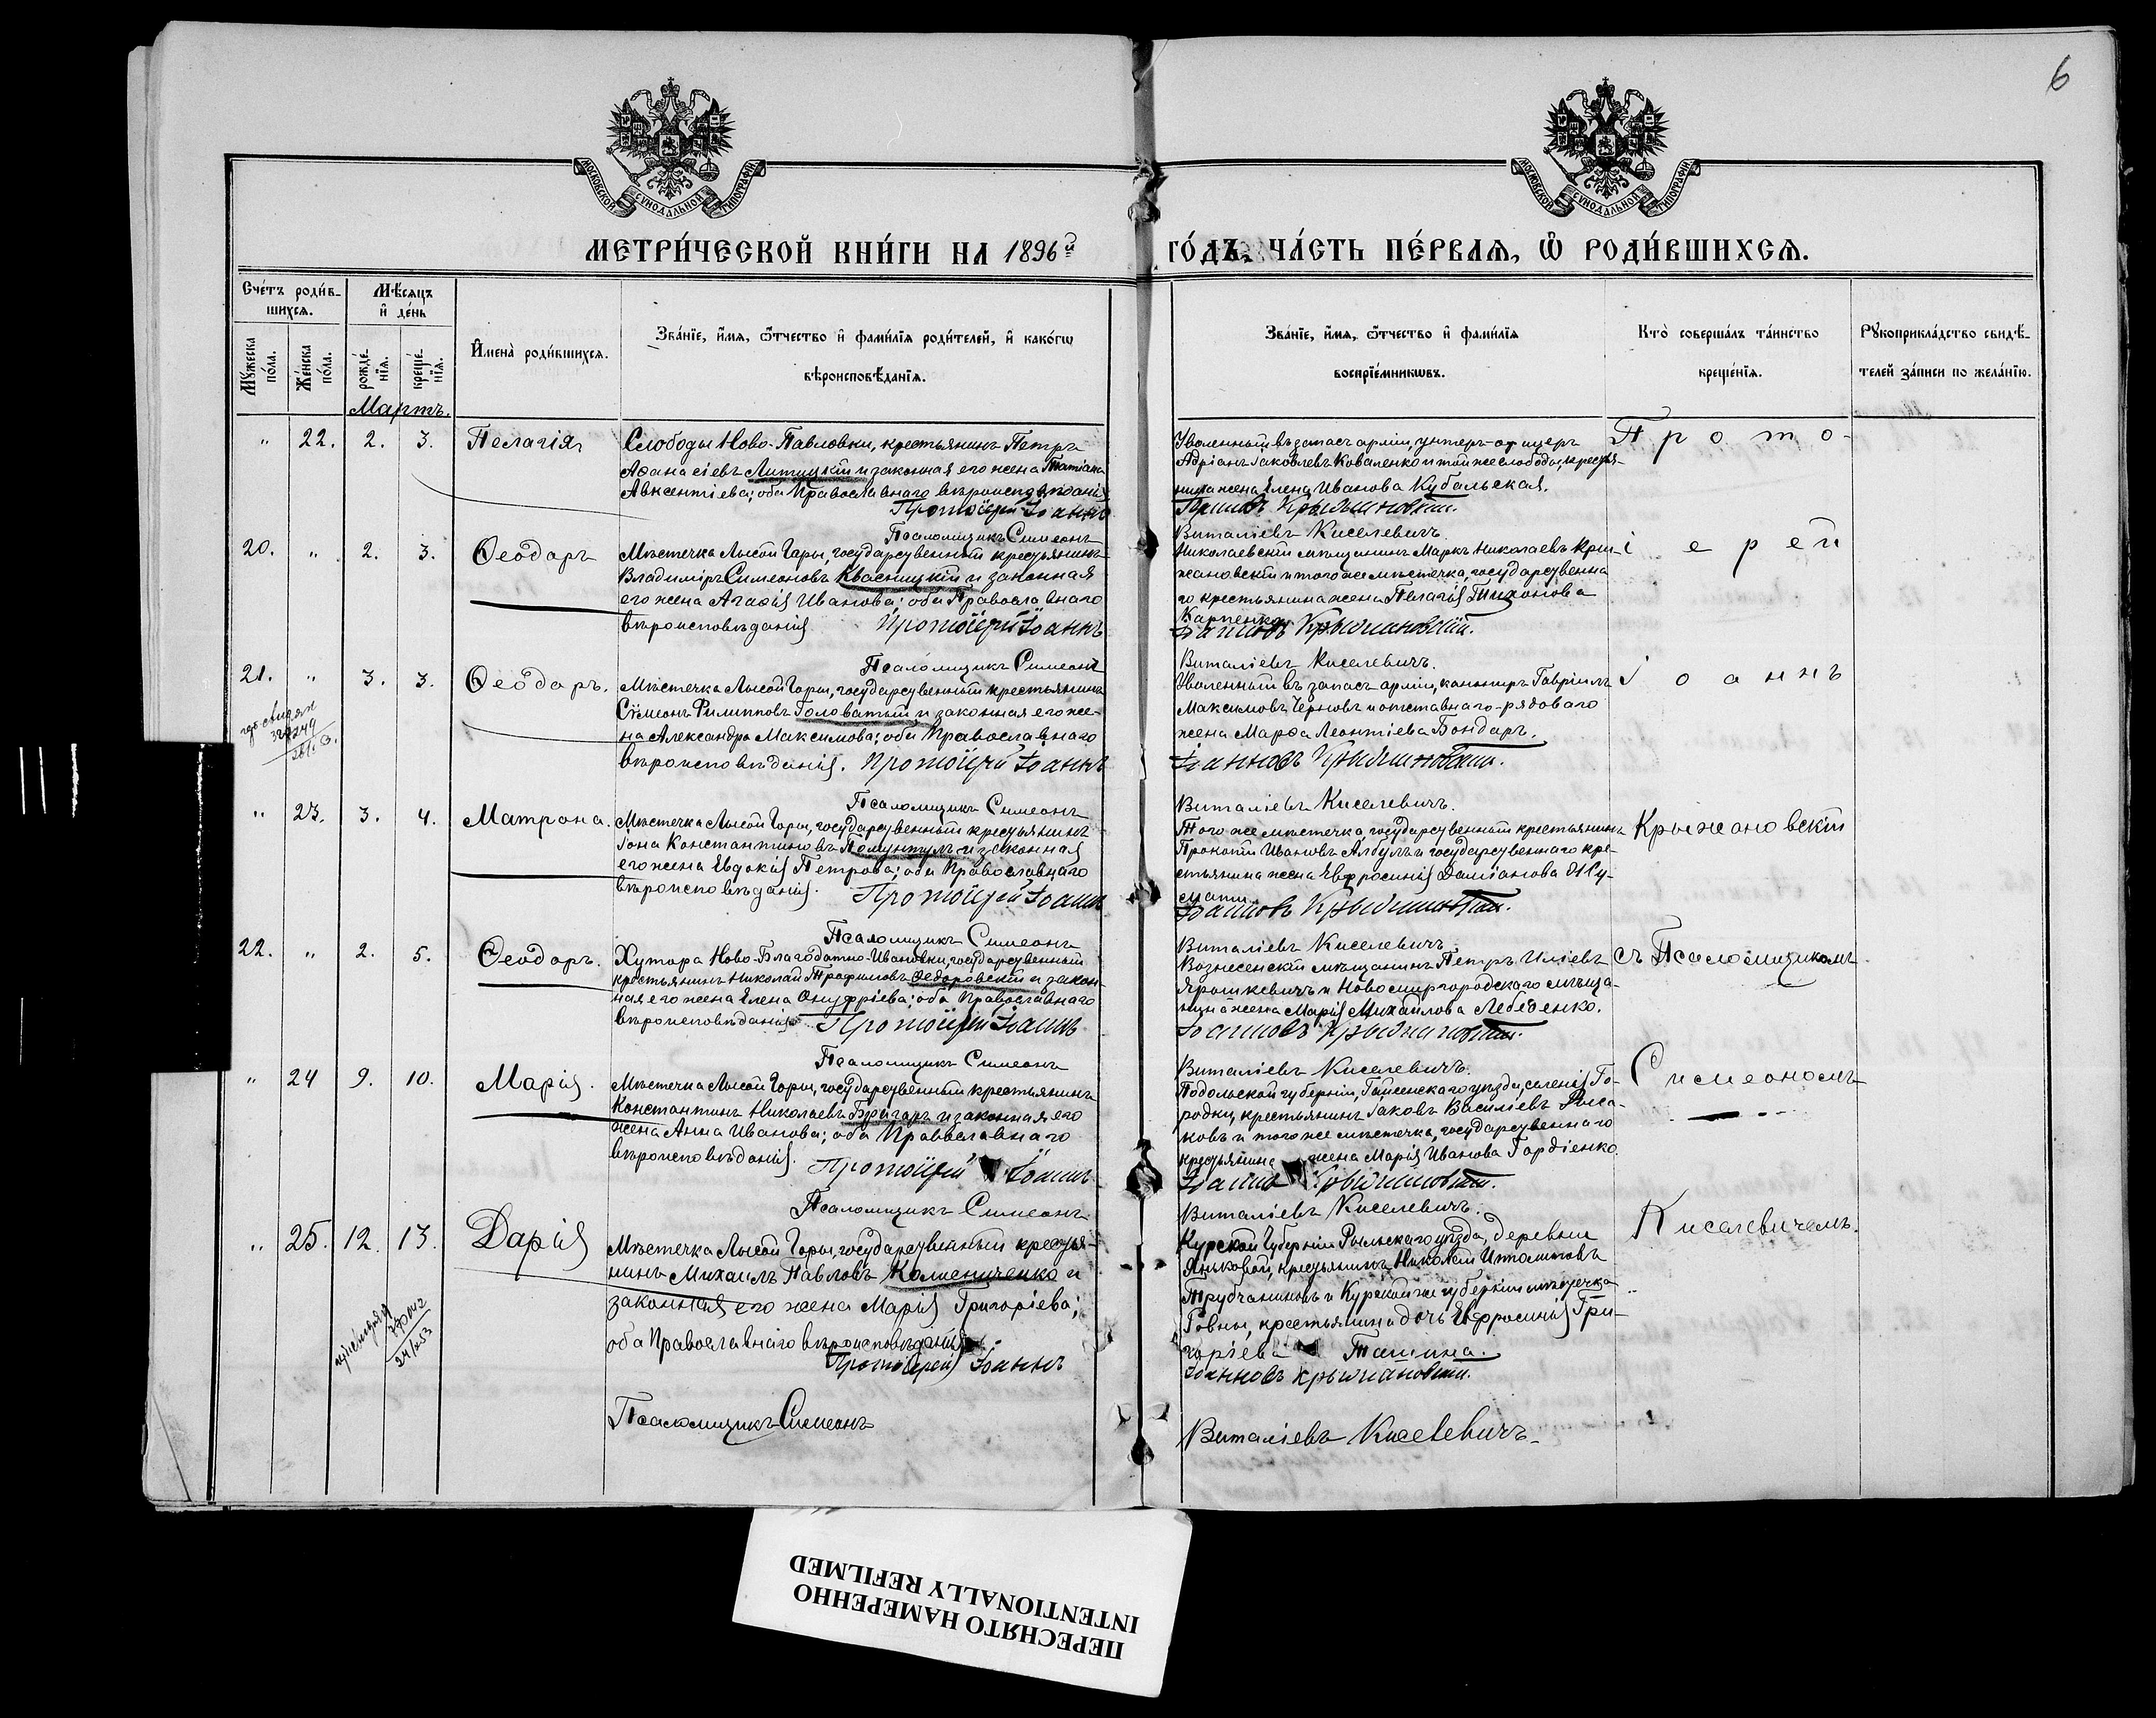 6
МОСКОВСКОЙ СѴНОДАЛЬНОЙ ТИПОГРАФІИ
МОСКОВСКОЙ СѴНОДАЛЬНОЙ ТИПОГРАФІИ
МЕТРИ́ЧЕСКОЙ КНИ́ГИ НА 1896й ГО́ДЪ, ЧА́СТЬ ПЕ́РВАЯ, Ѡ РОДИ́ВШИХСЯ.
Сче́тъ роди́в-
шихся.
Мѣ́сяцъ
и҆ де́нь
Му́жеска по́ла.
Же́нска по́ла.
рожде́-
нїя.
креще́-
нїя.
И҆мена̀ роди́вшихся.
Зва́нїе, и҆́мя, ѻ҆́тчество и҆ фами́лїя роди́телей, и҆ како́гѡ
вѣроисповѣ́данїя.
Зва́нїе, и҆́мя, ѻ҆́тчество и҆ фами́лїя
воспрїе́мникѡвъ.
Кто̀ соверша́лъ та́инство
креще́нїя.
Рꙋкоприкла́дство свидѣ́-
телей за́писи по жела́нїю.
Мартъ.
" 22. 2. 3. Пелагія
Слободы Ново-Павловки, крестьянинъ Петръ
Аѳанасіевъ Литицкій и законная его жена Татіана
Авксентіева; оба Православнаго вѣроисповѣданія
Протоіерей Іоаннъ
Псаломщикъ Симеонъ
Уволенный въ запасъ арміи, унтеръ-офицеръ
Адріанъ Іаковлевъ Коваленко и той же слободы, крестья-
нина жена Елена Иванова Кубальская.
Крыжановскій.
Виталіевъ Киселевичъ.
Прото-
20. " 2. 3. Ѳеодоръ
Мѣстечка Лысой Горы, государственный крестьянинъ
Владиміръ Симеоновъ Квасницкій и законная
его жена Агаѳія Иванова; оба Православнаго
вѣроисповѣданія Протоіерей Іоаннъ
Псаломщикъ Симеонъ
Николаевскій мѣщанинъ Маркъ Николаевъ Кри-
жановскій и того же мѣстечка, государственна
го крестьянина жена Пелагія Тихонова
Карпенко.
Іоанновъ Крыжановскій.
Виталіевъ Киселевичъ.
іерей
21. " 3. 3. Ѳеодоръ.
Мѣстечка Лысой Горы, государственный крестьянинъ
Сѵмеонъ Филипповъ Головатый и законная его же-
на Александра Максимова; оба Православнаго
вѣроисповѣданія. Протоіерей Іоаннъ
Псаломщикъ Симеонъ
Уволенный въ запасъ арміи, канониръ Гавріилъ
Максимовъ Черновъ и отставнаго рядоваго
жена Марѳа Леонтіева Бондарь.
Іоанновъ Крыжановскій.
Виталіевъ Киселевичъ.
Іоаннъ
" 23. 3. 4. Матрона.
Мѣстечка Лысой Горы, государственный крестьянинъ
Іона Константиновъ и законная
его жена Евдокія Петрова; оба Православнаго
вѣроисповѣданія. Протоіерей Іоаннъ
Псаломщикъ Симеонъ
Того же мѣстечка, государственный крестьянинъ
Прокопій Ивановъ Албулъ и государственнаго кре-
стьянина жена Евфросинія Даміанова
Іоанновъ Крыжановскій.
Виталіевъ Киселевичъ.
Крыжановскій
22. " 2. 5. Ѳеодоръ.
Хутора Ново-Благодатно-Ивановки, государственный
крестьянинъ Николай Трофимовъ Федоровскій и закон-
ная его жена Елена Онуфріева; оба Православнаго
вѣроисповѣданія. Протоіерей Іоаннъ
Псаломщикъ Симеонъ
Вознесенскій мѣщанинъ Петръ Иліевъ
Ярошкевичъ и Новомиргородскаго мѣща-
нина жена Марія Михайлова Лебеденко.
Іоанновъ Крыжановскій.
Виталіевъ Киселевичъ.
съ Псаломщикомъ
" 24 9. 10. Марія.
Мѣстечка Лысой Горы, государственный крестьянинъ
Константинъ Николаевъ и законная его
жена Анна Иванова; оба Православнаго
вѣроисповѣданія. Протоіерей Іоаннъ
Псаломщикъ Симеонъ
Подольской губерніи, Гайсинскаго уѣзда, селенія Го-
родки, крестьянинъ Іаковъ Василіевъ Лыса-
ковъ и того же мѣстечка, государственнаго
крестьянина жена Марія Иванова Гордіенко.
Крыжановскій.
Виталіевъ Киселевичъ.
Симеономъ
" 25. 12. 13. Дарія
Мѣстечка Лысой Горы, государственный крестья-
нинъ Михаилъ Павловъ Колисниченко и
законная его жена Марія Григоріева;
оба Православнаго вѣроисповѣданія.
Протоіерей Іоаннъ
Псаломщикъ Симеонъ
Курской Губерніи Рыльскаго уѣзда, деревни
Яньковой, крестьянинъ Николай
Трубчаниновъ и Курской же губерніи мѣстечка
Ровны, крестьянина дочь Евфросинія Гри-
горіева
Іоанновъ Крыжановскій.
Виталіевъ Киселевичъ.
Киселевичемъ.
ПЕРЕСНЯТО НАМЕРЕННО
INTENTIONALLY REFILMED